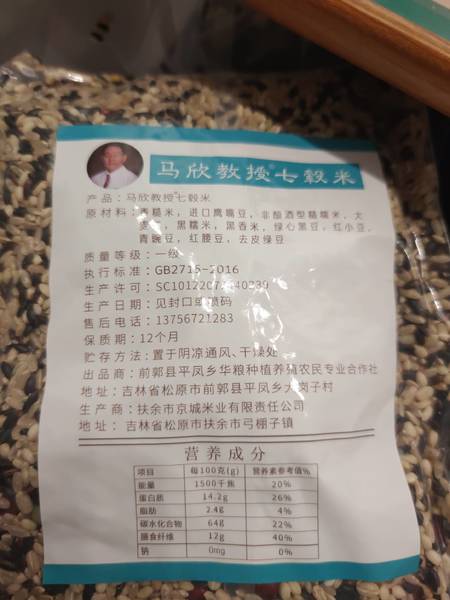 马欣教授®七穀米
产品：马欣教授®七穀米
原材料：香糯米，进口鹰嘴豆，非酿酒型糯糯米，大
，黑糯米，黑香米，绿心黑豆，红小豆，
青豌豆，红腰豆，去皮绿豆
质量等级：一级
执行标准：GB2715-2016
生产许可：
生产日期：见封口喷码
售后电话：13756721283
保质期：12个月
贮存方法：置于阴凉通风、干燥处
出品商：前郭县平凤乡华粮种植养殖农民专业合作社
地址：吉林省松原市前郭县平凤乡大岗子村
生产商：扶余市京城米业有限责任公司
地址：吉林省松原市扶余市弓棚子镇
营养成分
项目 每100克(g) 营养素参考值%
能量 1500千焦 20%
蛋白质 14.2g 26%
脂肪 2.4g 4%
碳水化合物 64g 22%
膳食纤维 12g 40%
钠 0mg 0%